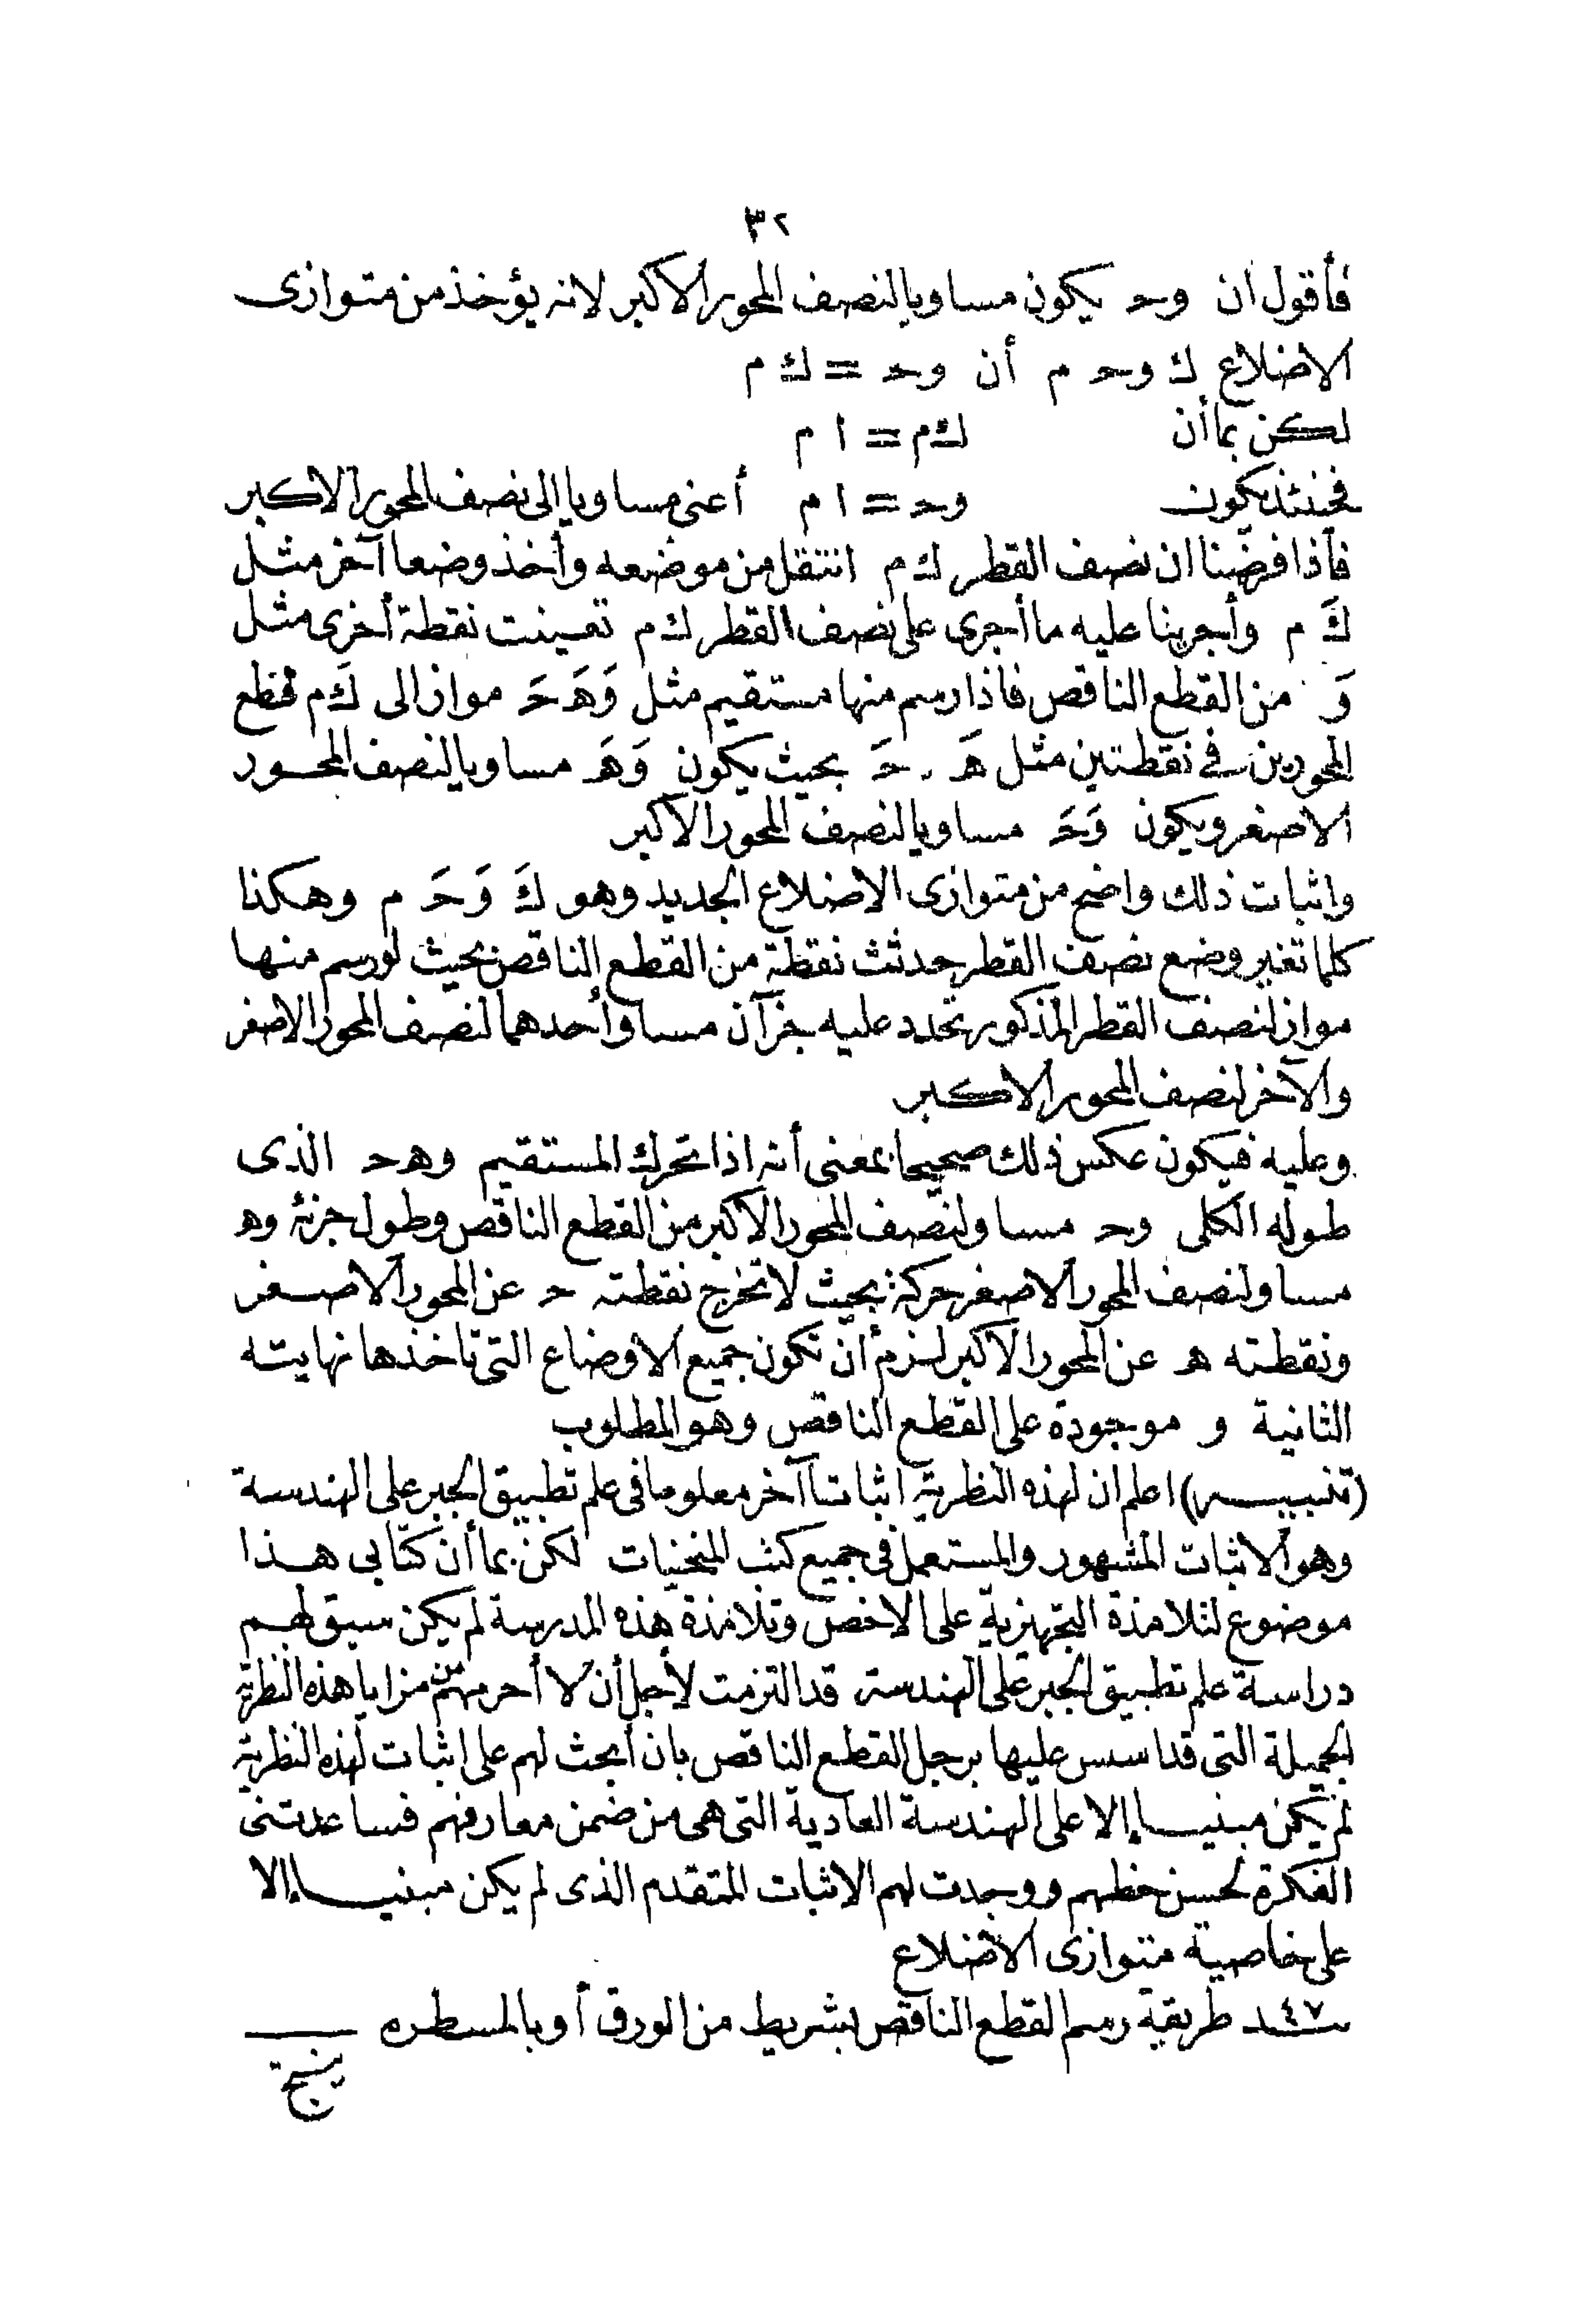 ٣٢
فأقول ان وحـ يكون مساويا لنصف المحور الاكبر لانه يؤخذ من متوازى
الاضلاع ك وحـ م أن وحـ = ك م
لكن بما أن ك م = ا م
فحينئذ يكون وحـ = ا م أعنى مساويا الى نصف المحور الاكبر
فاذا فرضنا ان نصف القطر ك م انتقل من موضعه وأخذ وضعا آخر مثل
كَ م وأجرينا عليه ما أجرى على نصف القطر ك م تعينت نقطة أخرى مثل
وَ من القطع الناقص فاذا رسم منها مستقيم مثل وَهَحَـ مواز الى كَ م قطع
المحورين فى نقطتين مثل هَ ، حَـ بحيث يكون وَهَ مساويا لنصف المحور
الاصغر ويكون وَحَـ مساويا لنصف المحور الاكبر
واثبات ذلك واضح من متوازى الاضلاع الجديد وهو كَ وَحَـ م وهكذا
كلما تغير وضع نصف القطر حدثت نقطة من القطع الناقص بحيث لو رسم منها
مواز لنصف القطر المذكور تحدد عليه جزآن مساو أحدهما لنصف المحور الاصغر
والآخر لنصف المحور الاكبر
وعليه فيكون عكس ذلك صحيحا بمعنى أنه اذا تحرك المستقيم وهحـ الذى
طوله الكلى وحـ مساو لنصف المحور الاكبر من القطع الناقص وطول جزئه وهـ
مساو لنصف المحور الاصغر حركة بحيث لا تخرج نقطته حـ عن المحور الاصغر
ونقطته هـ عن المحور الاكبر لزم أن تكون جميع الاوضاع التى تاخذها نهايته
الثانية و موجودة على القطع الناقص وهو المطلوب
(تنبيه) اعلم ان لهذه النظرية اثباتا آخر معلوما فى علم تطبيق الجبر على الهندسة
وهو الاثبات المشهور والمستعمل فى جميع كتب المنحنيات لكن بما أن كتابى هذا
موضوع لتلامذة التجهيزية على الاخص وتلامذة هذه المدرسة لم يكن سبق لهم
دراسة علم تطبيق الجبر على الهندسة قد التزمت لأجل أن لا أحرمهم من مزايا هذه النظرية
الجميلة التى قد اسس عليها برجل القطع الناقص بان أبحث لهم على اثبات لهذه النظرية
لم يكن مبنيا إلا على الهندسة العادية التى هى من ضمن معارفهم فساعدتنى
الفكرة لحسن حظهم ووجدت لهم الاثبات المتقدم الذى لم يكن مبنيا إلا
على خاصية متوازى الاضلاع
٤٧ـنـد طريقة رسم القطع الناقص بشريط من الورق أو بالمسطره
ينتج